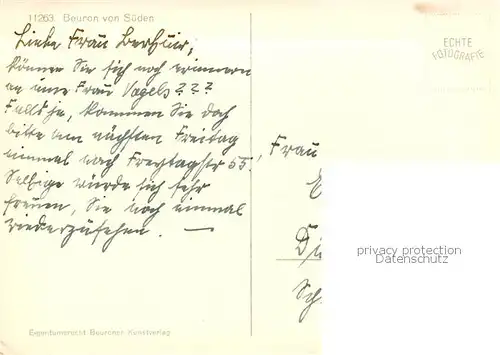 11263 Beuron von Süden
ECHTE
FOTOGRAFIE
Liebe Frau
können Sie sich noch erinnern
an eine Frau Vogels???
Falls ja, kommen Sie doch
bitte am nächsten Freitag
einmal nach Freytagstr 55.
Selbige würde sich sehr
freuen, Sie noch einmal
wiederzusehen. —
Frau
privacy protection
DELCAMPE
Eigentumsrecht Beuroner Kunstverlag